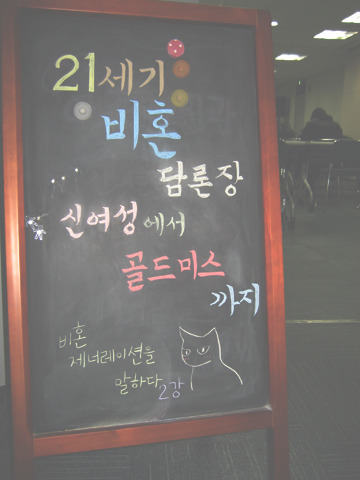 21세기
비혼
담론장
신여성에서
골드미스
까지
비혼
제너레이션을
말하다 2강